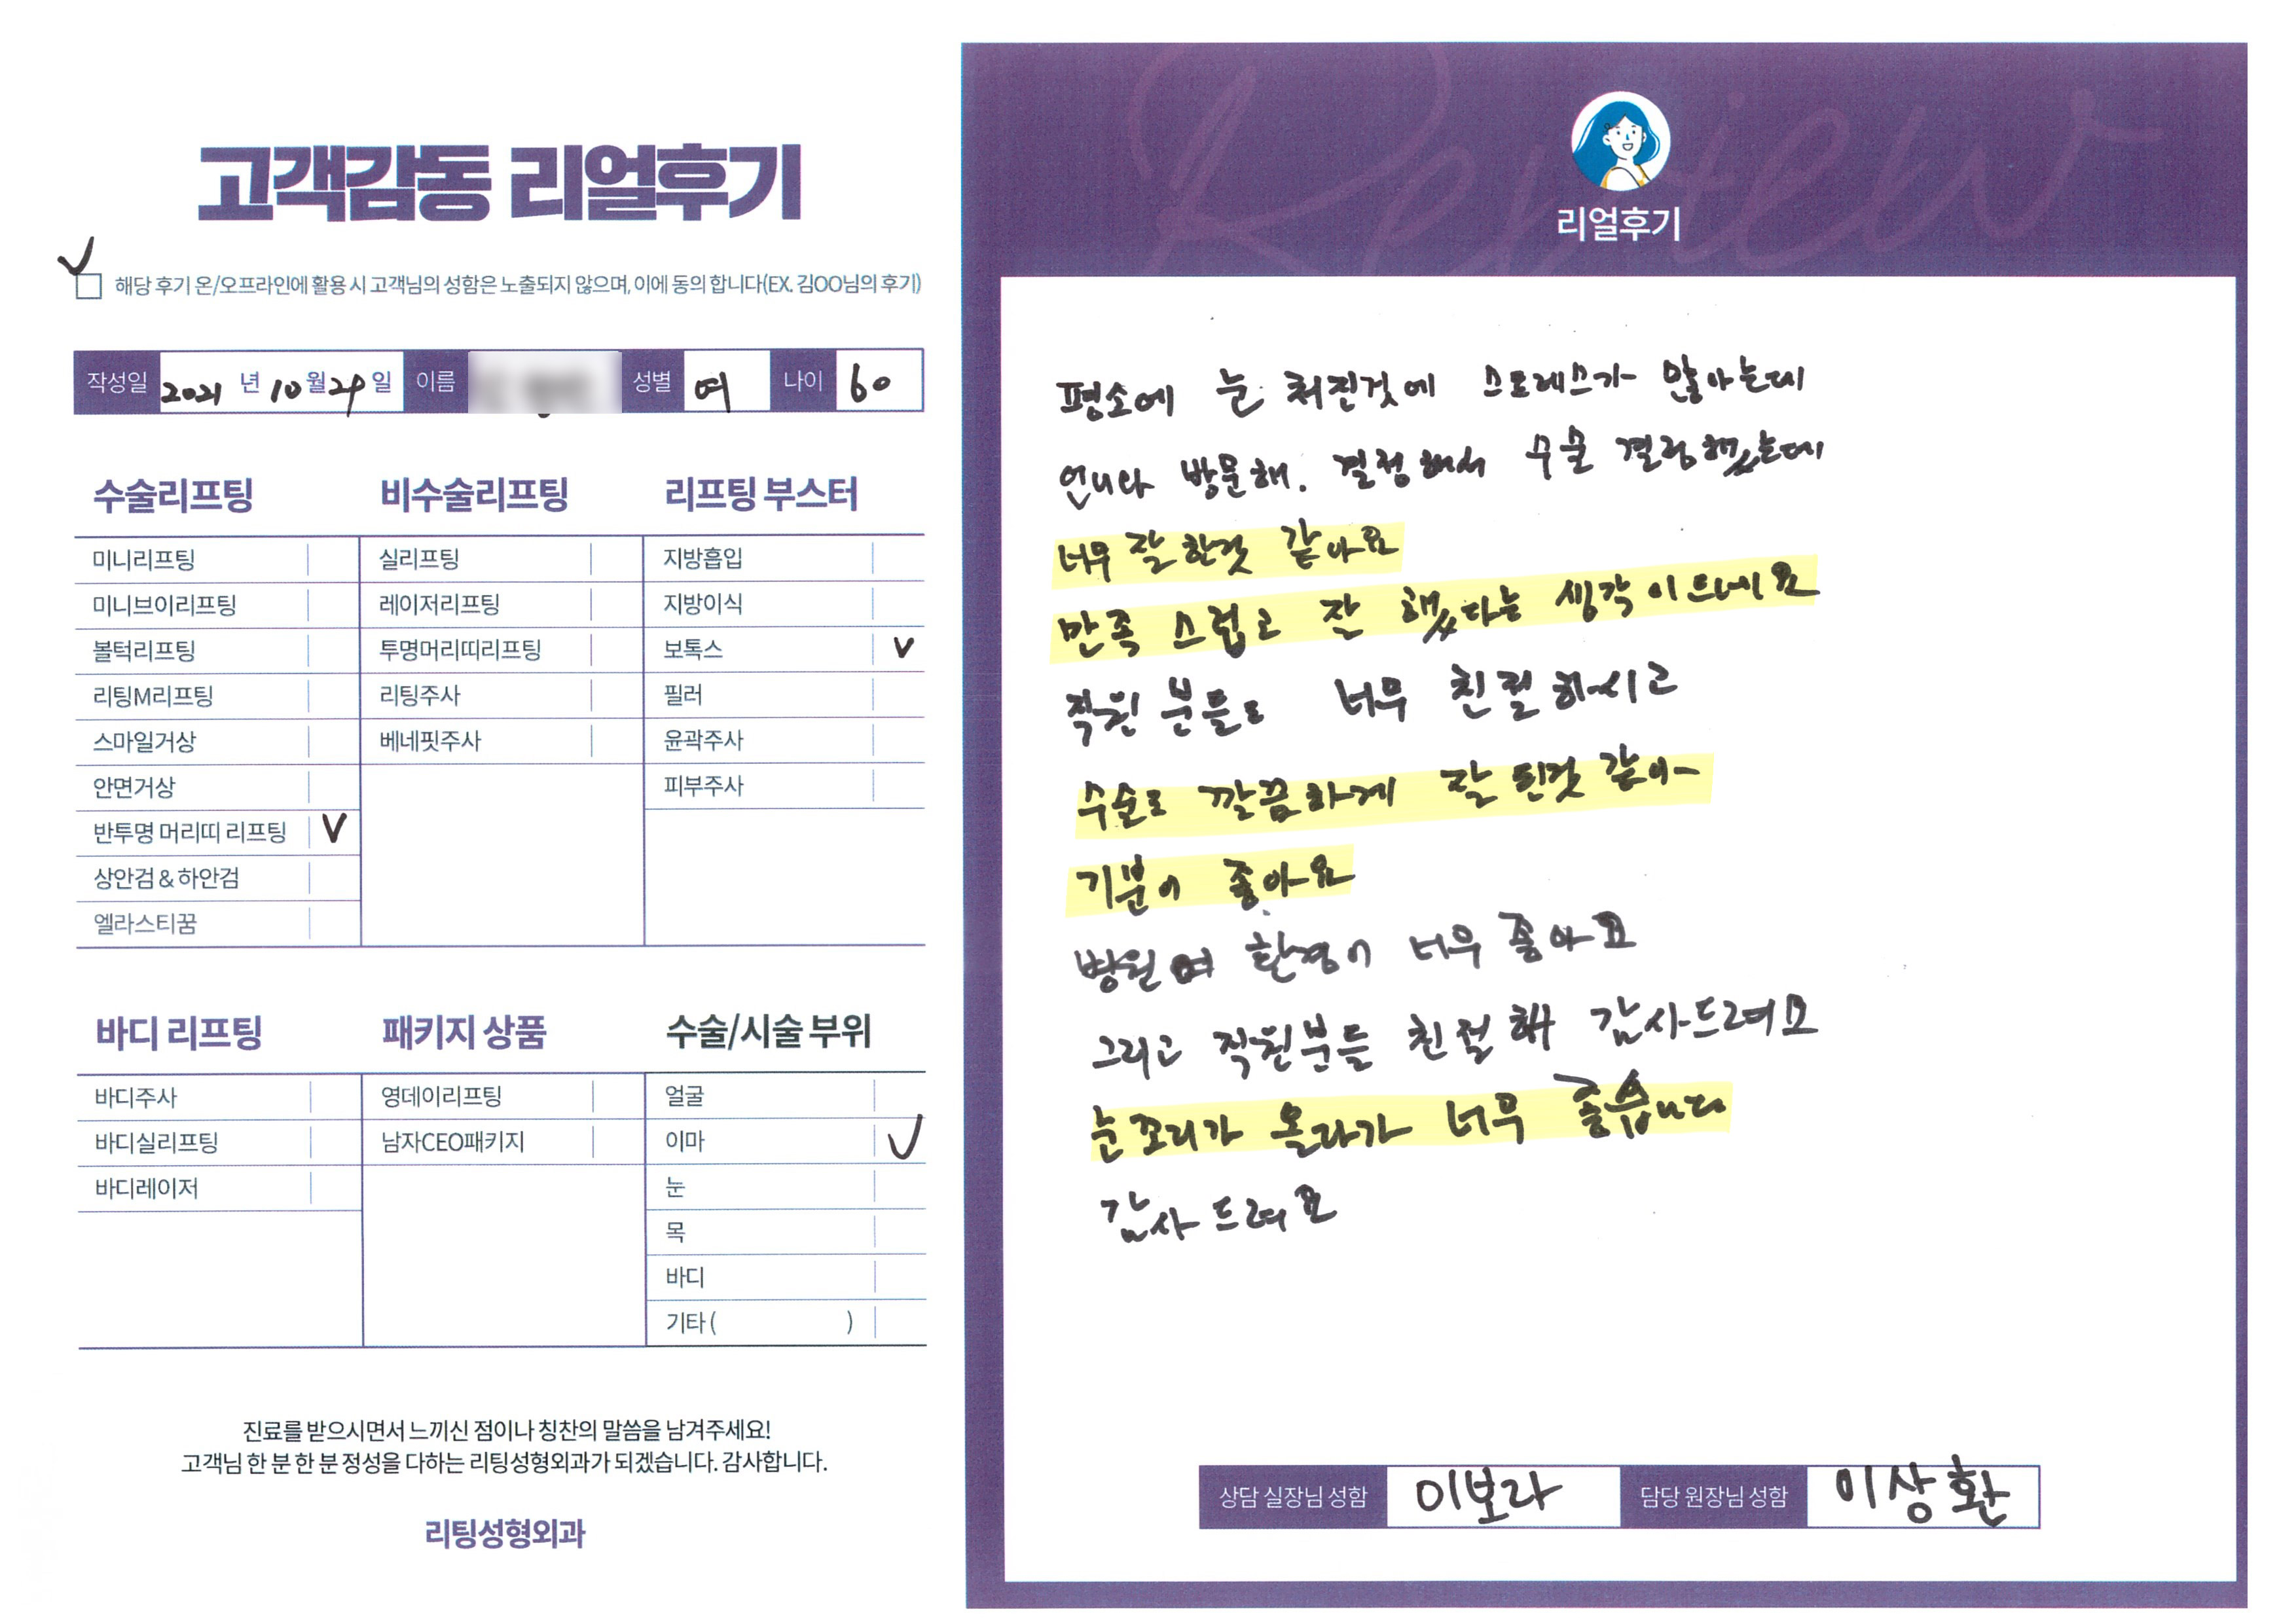 고객감동 리얼후기
해당 후기 온/오프라인에 활용 시 고객님의 성함은 노출되지 않으며, 이에 동의 합니다(EX. 김OO님의 후기)
작성일 2021 년 10 월 29 일 이름 성별 여 나이 60
수술리프팅
미니리프팅
미니브이리프팅
볼턱리프팅
리팅M리프팅
스마일거상
안면거상
반투명 머리띠 리프팅 V
상안검 & 하안검
엘라스티꿈
비수술리프팅
실리프팅
레이저리프팅
투명머리띠리프팅
리팅주사
베네핏주사
리프팅 부스터
지방흡입
지방이식
보톡스 V
필러
윤곽주사
피부주사
바디 리프팅
바디주사
바디실리프팅
바디레이저
패키지 상품
영데이리프팅
남자CEO패키지
수술/시술 부위
얼굴
이마 V
눈
목
바디
기타 ( )
진료를 받으시면서 느끼신 점이나 칭찬의 말씀을 남겨주세요!
고객님 한 분 한 분 정성을 다하는 리팅성형외과가 되겠습니다. 감사합니다.
리팅성형외과
Review
리얼후기
평소에 눈 처진것에 스트레스가 많아는데
언니와 방문해. 결정해서 수술 결정했는데
너무 잘 한것 같아요
만족 스럽고 잘 했다는 생각이 드네요
직원 분들도 너무 친절하시고
수술도 깔끔하게 잘 된것 같아
기분이 좋아요
병원 환경이 너무 좋아요
그리고 직원분들 친절해 감사드려요
눈꼬리가 올라가 너무 좋습니다
감사 드려요
상담 실장님 성함 이보라 담당 원장님 성함 이상환